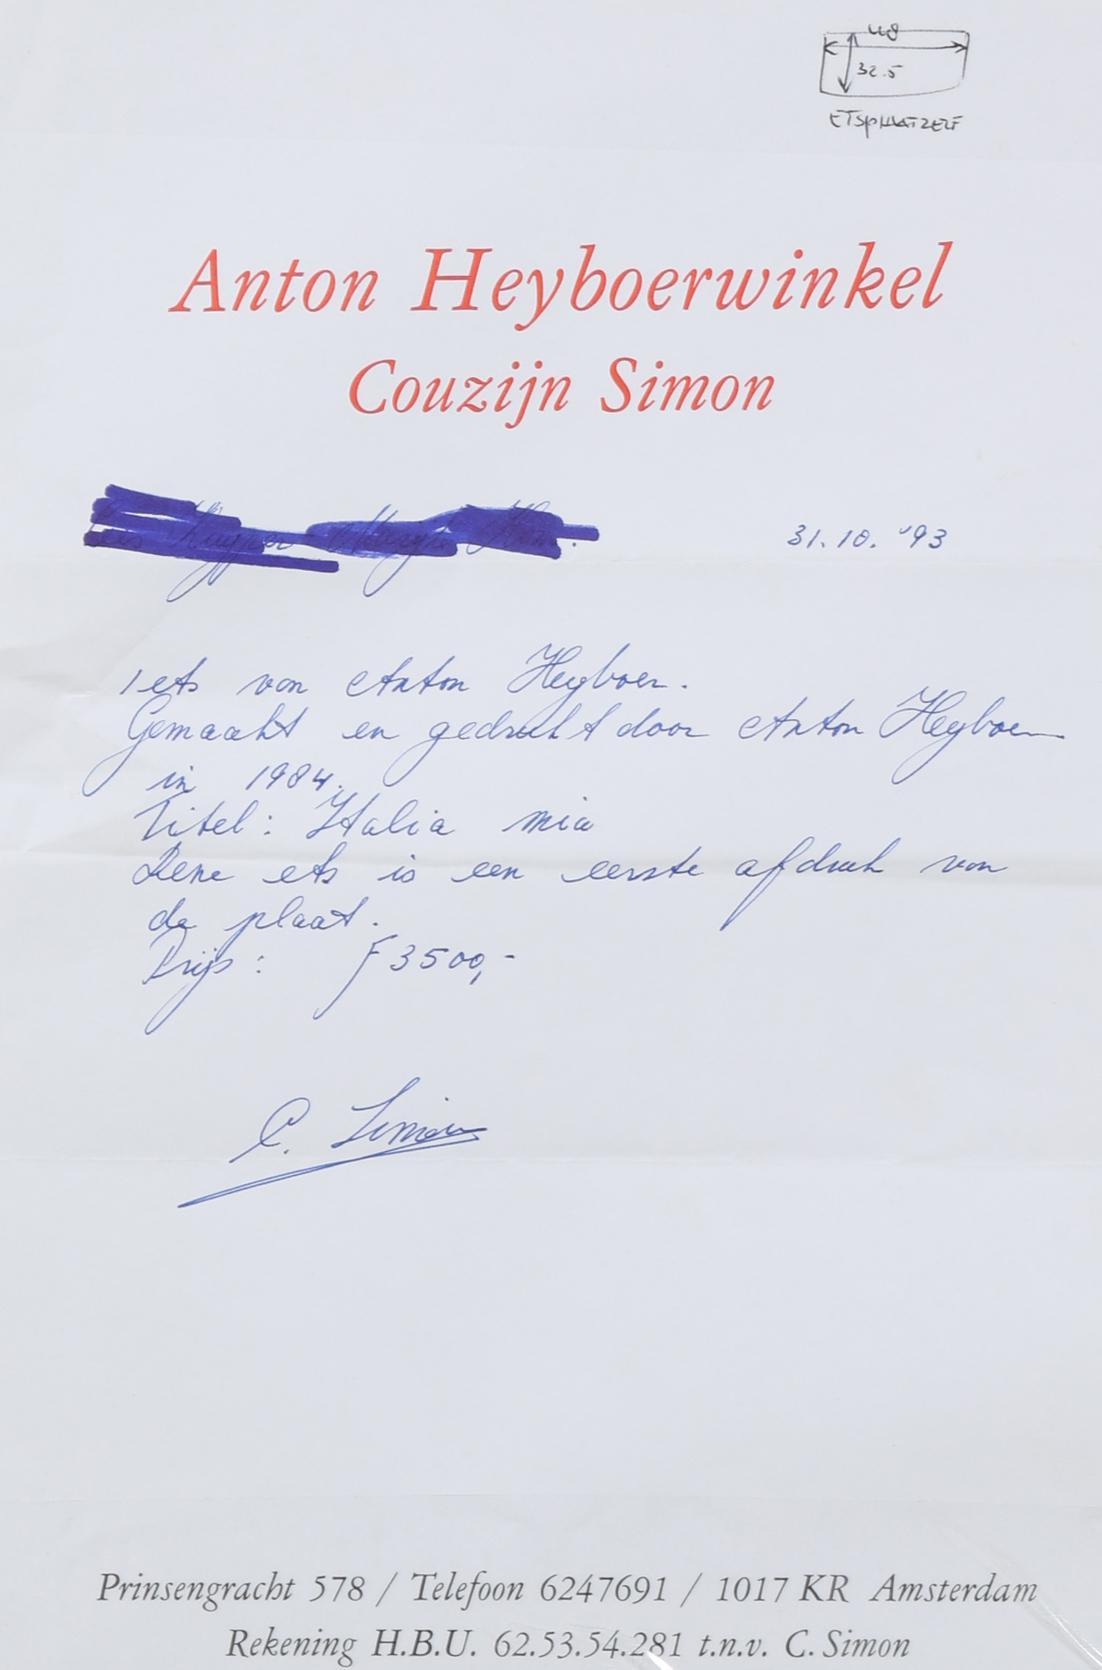 48
32.5
ETSPLAATZELF
Anton Heyboerwinkel
Couzijn Simon
31.10.'93
1 ets van Anton Heyboer.
Gemaakt en gedrukt door Anton Heyboer
in 1984.
Titel: Italia mia
Deze ets is een eerste afdruk van
de plaat.
Prijs: ƒ 3500,-
C. Simon
Prinsengracht 578 / Telefoon 6247691 / 1017 KR Amsterdam
Rekening H.B.U. 62.53.54.281 t.n.v. C. Simon